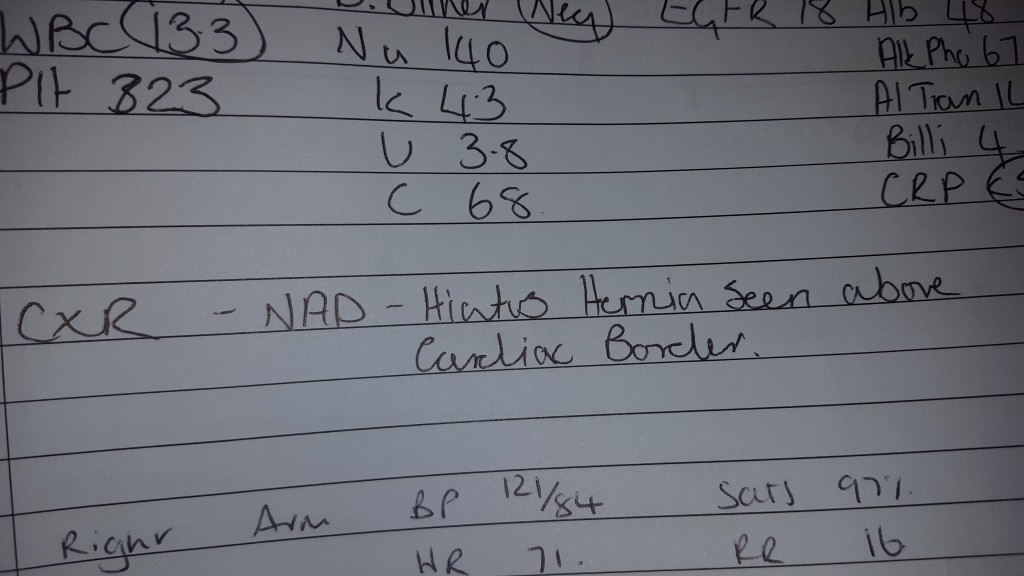 D. Dimer (Neg) EGFR 78 Alb 48
WBC (13.3) Na 140 Alk Pho 67
Plt 323 K 4.3 Al Tran
U 3.8 Billi 4
C 68 CRP
CXR - NAD - Hiatus Hernia seen above
Cardiac Border.
Right Arm BP 121/84 Sats 97%.
HR 71. RR 16